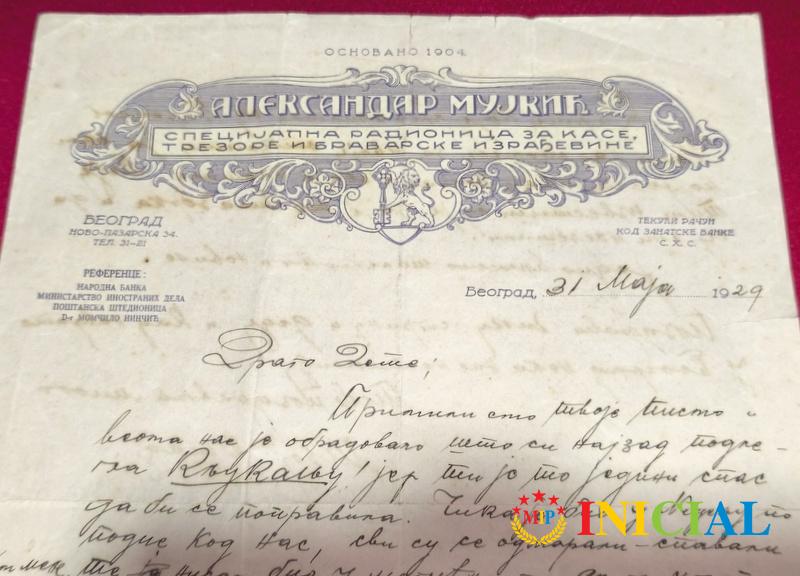 ОСНОВАНО 1904.
АЛЕКСАНДАР МУЈКИЋ
СПЕЦИЈАЛНА РАДИОНИЦА ЗА КАСЕ,
ТРЕЗОРЕ И БРАВАРСКЕ ИЗРАЂЕВИНЕ
БЕОГРАД
НОВО-ПАЗАРСКА 34.
ТЕЛ. 31-21
ТЕКУЋИ РАЧУН
КОД ЗАНАТСКЕ БАНКЕ
С. Х. С.
РЕФЕРЕНЦЕ:
НАРОДНА БАНКА
МИНИСТАРСТВО ИНОСТРАНИХ ДЕЛА
ПОШТАНСКА ШТЕДИОНИЦА
D-r МОМЧИЛО НИНЧИЋ
Београд, 31 Маја 1929
Драго Дете,
Примили смо твоје писмо и
веома нас је обрадовало што си најзад
јер ти је то једини спас
да би се поправила. Чика
код нас, сви су се одморали - спавали
MP INICIAL